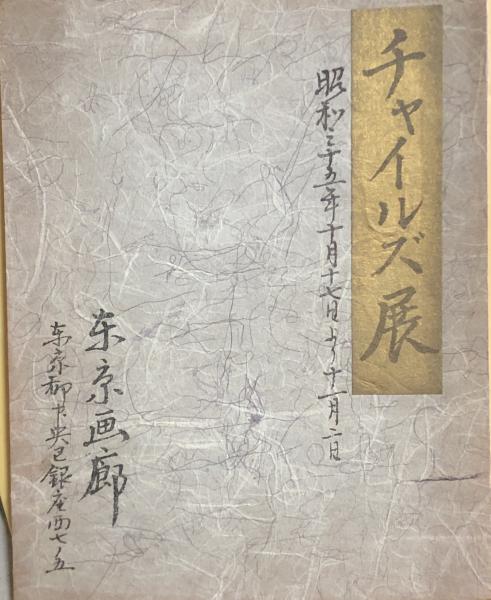 チャイルズ展
昭和三十五年十月十七日より十一月二日
东京画廊
东京都中央区銀座西七ノ五